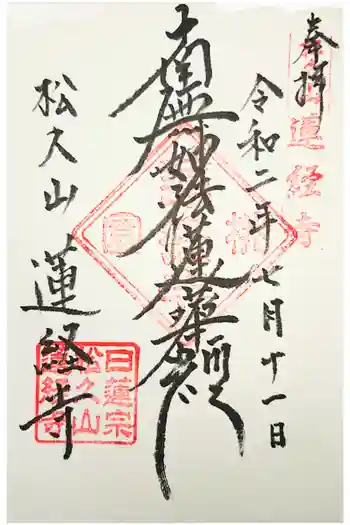 奉拝
令和二年七月十一日
南無妙法蓮華経
松久山 蓮経寺
蓮経寺
日蓮宗
松久山
蓮経寺